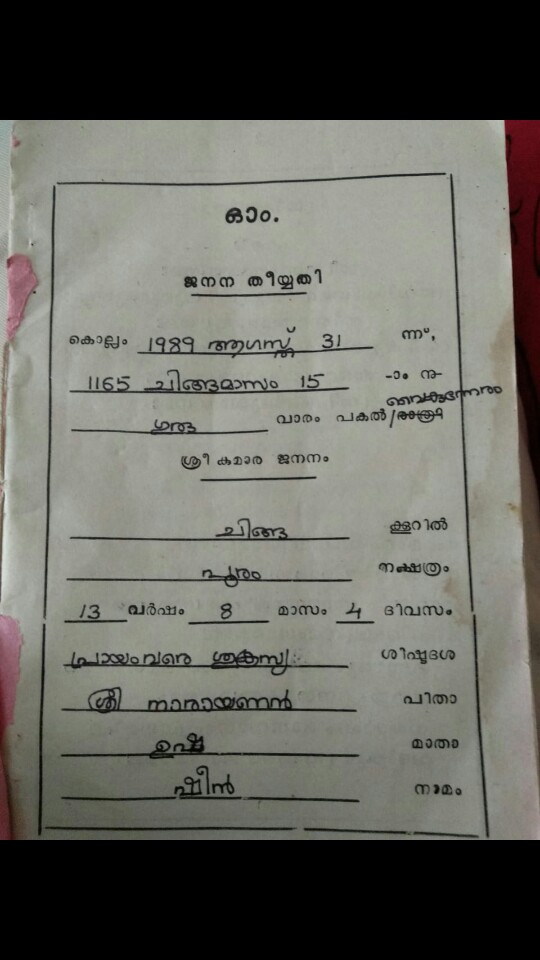 ഓം.
ജനന തീയ്യതി
കൊല്ലം 1989 ആഗസ്ത് 31 ന്ന്,
1165 ചിങ്ങമാസം 15 -ാം നു-
വൈകുന്നേരം
ഗുരു വാരം പകൽ/രാത്രി
ശ്രീ കുമാര ജനനം
ചിങ്ങ കൂറിൽ
പൂരം നക്ഷത്രം
13 വർഷം 8 മാസം 4 ദിവസം
പ്രായംവരെ ശുക്രസ്യ ശിഷ്ടദശ
ശ്രീ നാരായണൻ പിതാ
ഉഷ മാതാ
ഷീൻ നാമം